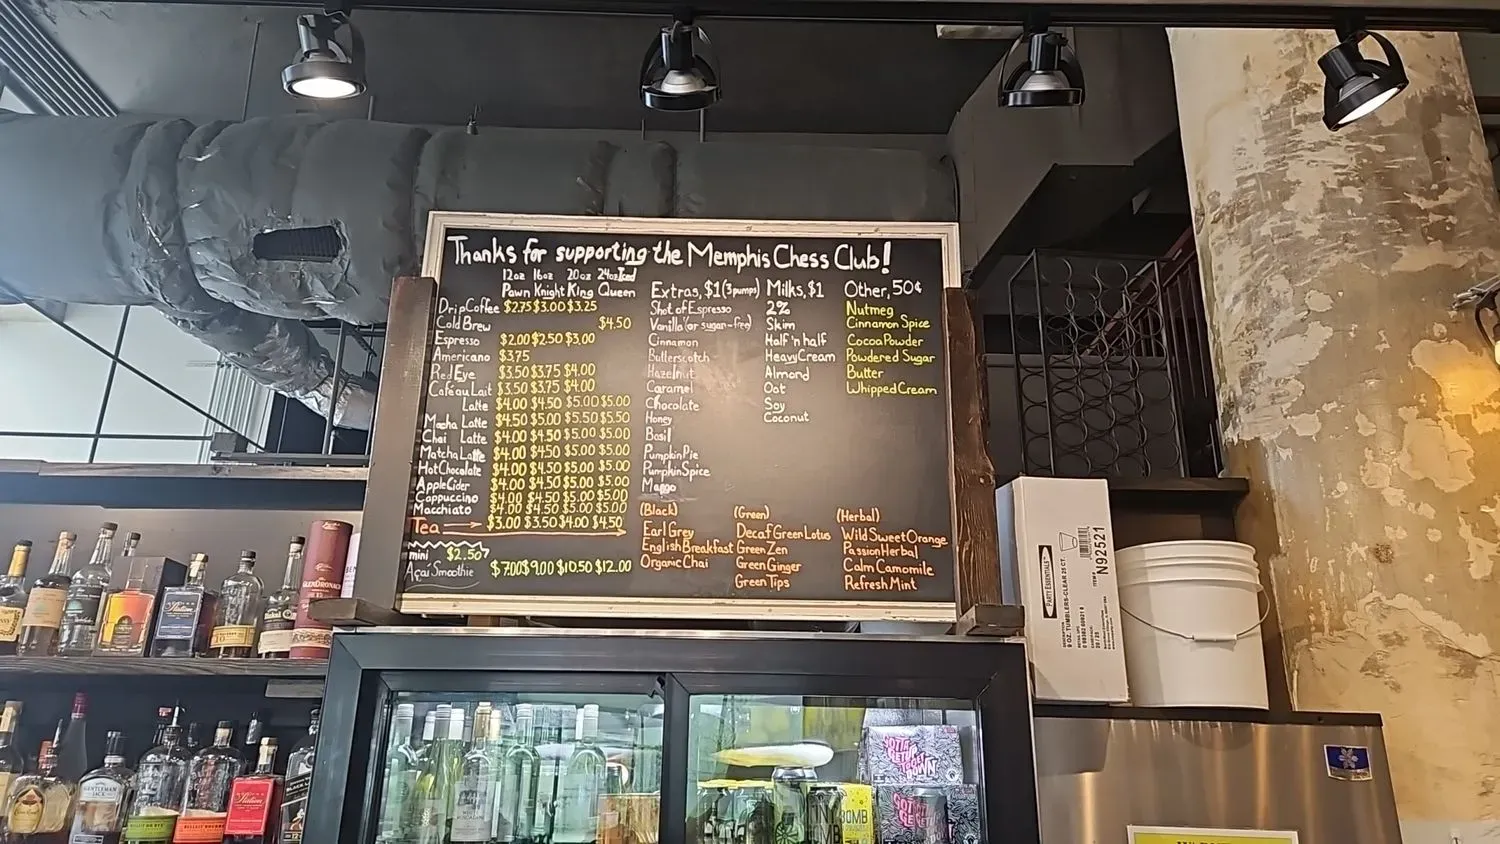 Thanks for supporting the Memphis Chess Club!
12oz 16oz 20oz 24oz Iced
Pawn Knight King Queen
Drip Coffee $2.75 $3.00 $3.25
Cold Brew $4.50
Espresso $2.00 $2.50 $3.00
Americano $3.75
Red Eye $3.50 $3.75 $4.00
Café au Lait $3.50 $3.75 $4.00
Latte $4.00 $4.50 $5.00 $5.00
Mocha Latte $4.50 $5.00 $5.50 $5.50
Chai Latte $4.00 $4.50 $5.00 $5.00
Matcha Latte $4.00 $4.50 $5.00 $5.00
Hot Chocolate $4.00 $4.50 $5.00 $5.00
Apple Cider $4.00 $4.50 $5.00 $5.00
Cappuccino $4.00 $4.50 $5.00 $5.00
Macchiato $4.00 $4.50 $5.00 $5.00
Tea $3.00 $3.50 $4.00 $4.50
mini $2.50
Açai Smoothie $7.00 $9.00 $10.50 $12.00
Extras, $1 (3 pumps)
Shot of Espresso
Vanilla (or sugar-free)
Cinnamon
Butterscotch
Hazelnut
Caramel
Chocolate
Honey
Basil
Pumpkin Pie
Pumpkin Spice
Mango
Milks, $1
2%
Skim
Half 'n half
Heavy Cream
Almond
Oat
Soy
Coconut
Other, 50¢
Nutmeg
Cinnamon Spice
Cocoa Powder
Powdered Sugar
Butter
Whipped Cream
(Black)
Earl Grey
English Breakfast
Organic Chai
(Green)
Decaf Green Lotus
Green Zen
Green Ginger
Green Tips
(Herbal)
Wild Sweet Orange
Passion Herbal
Calm Camomile
Refresh Mint
PARTY ESSENTIALS
9 OZ. TUMBLERS-CLEAR 25 CT
N92521
GLENDRONACH
GENTLEMAN
JACK
BOMB